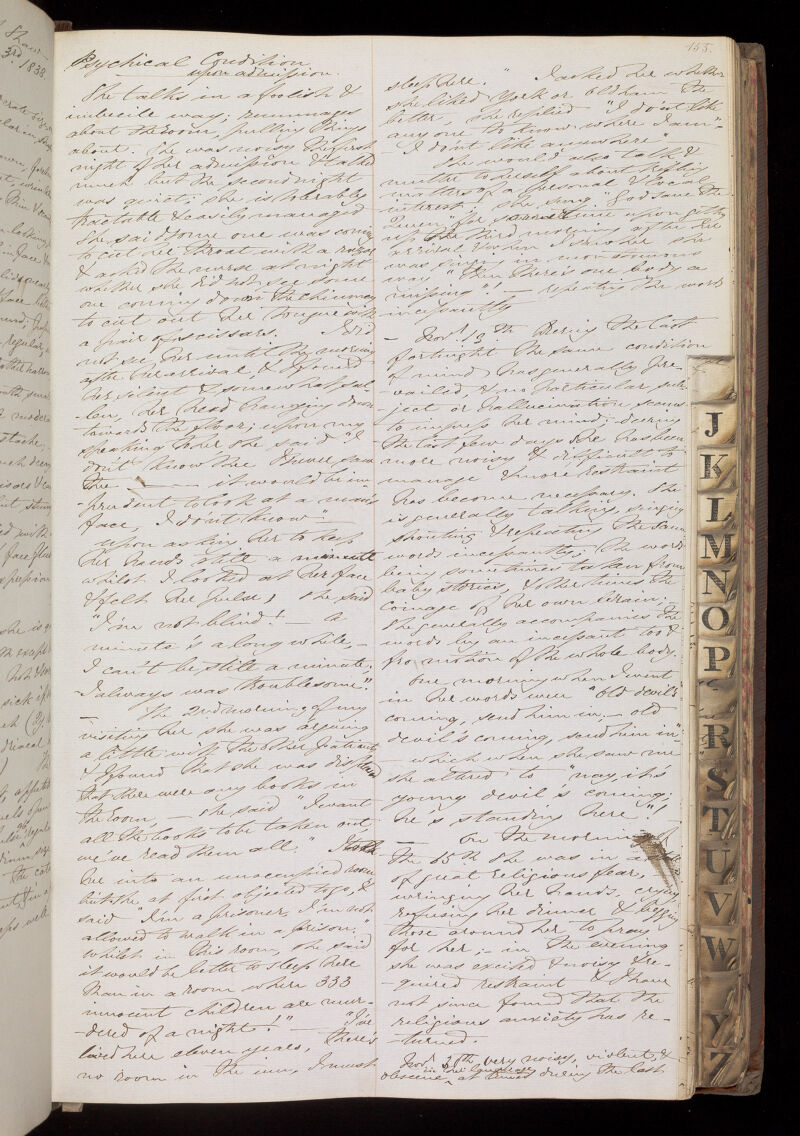 155.
Psychical Condition
upon admission.
She talks in a foolish &
imbecile way; rummages
about the room, pulling things
about. She was noisy the first
night of her admission & talked
much but the second night
was quiet; she is tolerably
tractable & easily managed
She said some one was coming
to cut her throat with a razor
& asked the nurse at night
whether she did not see some
one coming down the chimney
to cut out her tongue with
a pair of scissors. I did
not see her until the morning
after her arrival & I found
her silent & somewhat sul-
len, her head hanging down
towards the floor; upon my
speaking to her she said "I
don't know thee I never saw
thee — it would be im-
prudent to look at a man's
face, I don't know"—
upon asking her to keep
her hands still a minute
whilst I looked at her face
& felt her pulse, she said
"I'm not blind! — a
minute's a long while, —
I can't be still a minute;
I always was troublesome."
— The 2nd morning of my
visiting her she was arguing
a little with the other patients
& I found that she was displeased
that there were any books in
the room, — she said I want
all the books to be taken out,
we've read them all" I took
her into an unoccupied room
but she at first objected to go, &
said "I'm a prisoner, I'm not
allowed to walk in a prison."
Whilst in this room, she said
it would be better to sleep here
than in a room where 333
innocent children are mur-
dered of a night!" — "I've
lived here eleven years, there's
no room in the inn, I must
sleep here." I asked her whether
she liked York or Oldham the
better, she replied "I don't like
any one to know where I am" –
"I don't like anywhere"
She would also talk &
mutter to herself about trifling
matters of a personal & local
interest; she sung God save the
Queen for some time upon getting
up the third morning after her
arrival & when I saw her she
was singing in monotonous
way "Then there's one body a
missing"! — repeating the words
incessantly
— Novr. 13th During the last
fortnight the same condition
of mind has generally pre-
vailed, & no particular sub-
ject or hallucination seems
to impress her mind; during
the last few days she has been
more noisy & difficult to
manage & more restraint
has become necessary. She
is generally talking, singing
shouting & repeating the same
words incessantly; the words
being sometimes taken from
baby stories, & other times the
coinage of her own brain.
She generally accompanies the
words by an incessant to &
fro motion of the whole body.
One morning when I went
in her words were "Old devil's
coming, send him in, — old
devil's coming, send him in";
— which when she saw me
she altered to — "nay it's
young devil's coming;
he's standing here"!
— On the morning of
the 15th she was in a
of great religious fear,
wringing her hands, crying
refusing her dinner & begging
those around her to pray
for her; — in the evening
she was excited & noisy & re-
quired restraint & I have
not since found that the
religious anxiety has re-
turned.
Novr. very noisy, violent, &
obscene in her language at times during the last
Shaw
3rd 1838.
J
K
L
M
N
O
P
R
S
T
U
V
W
Y
Z